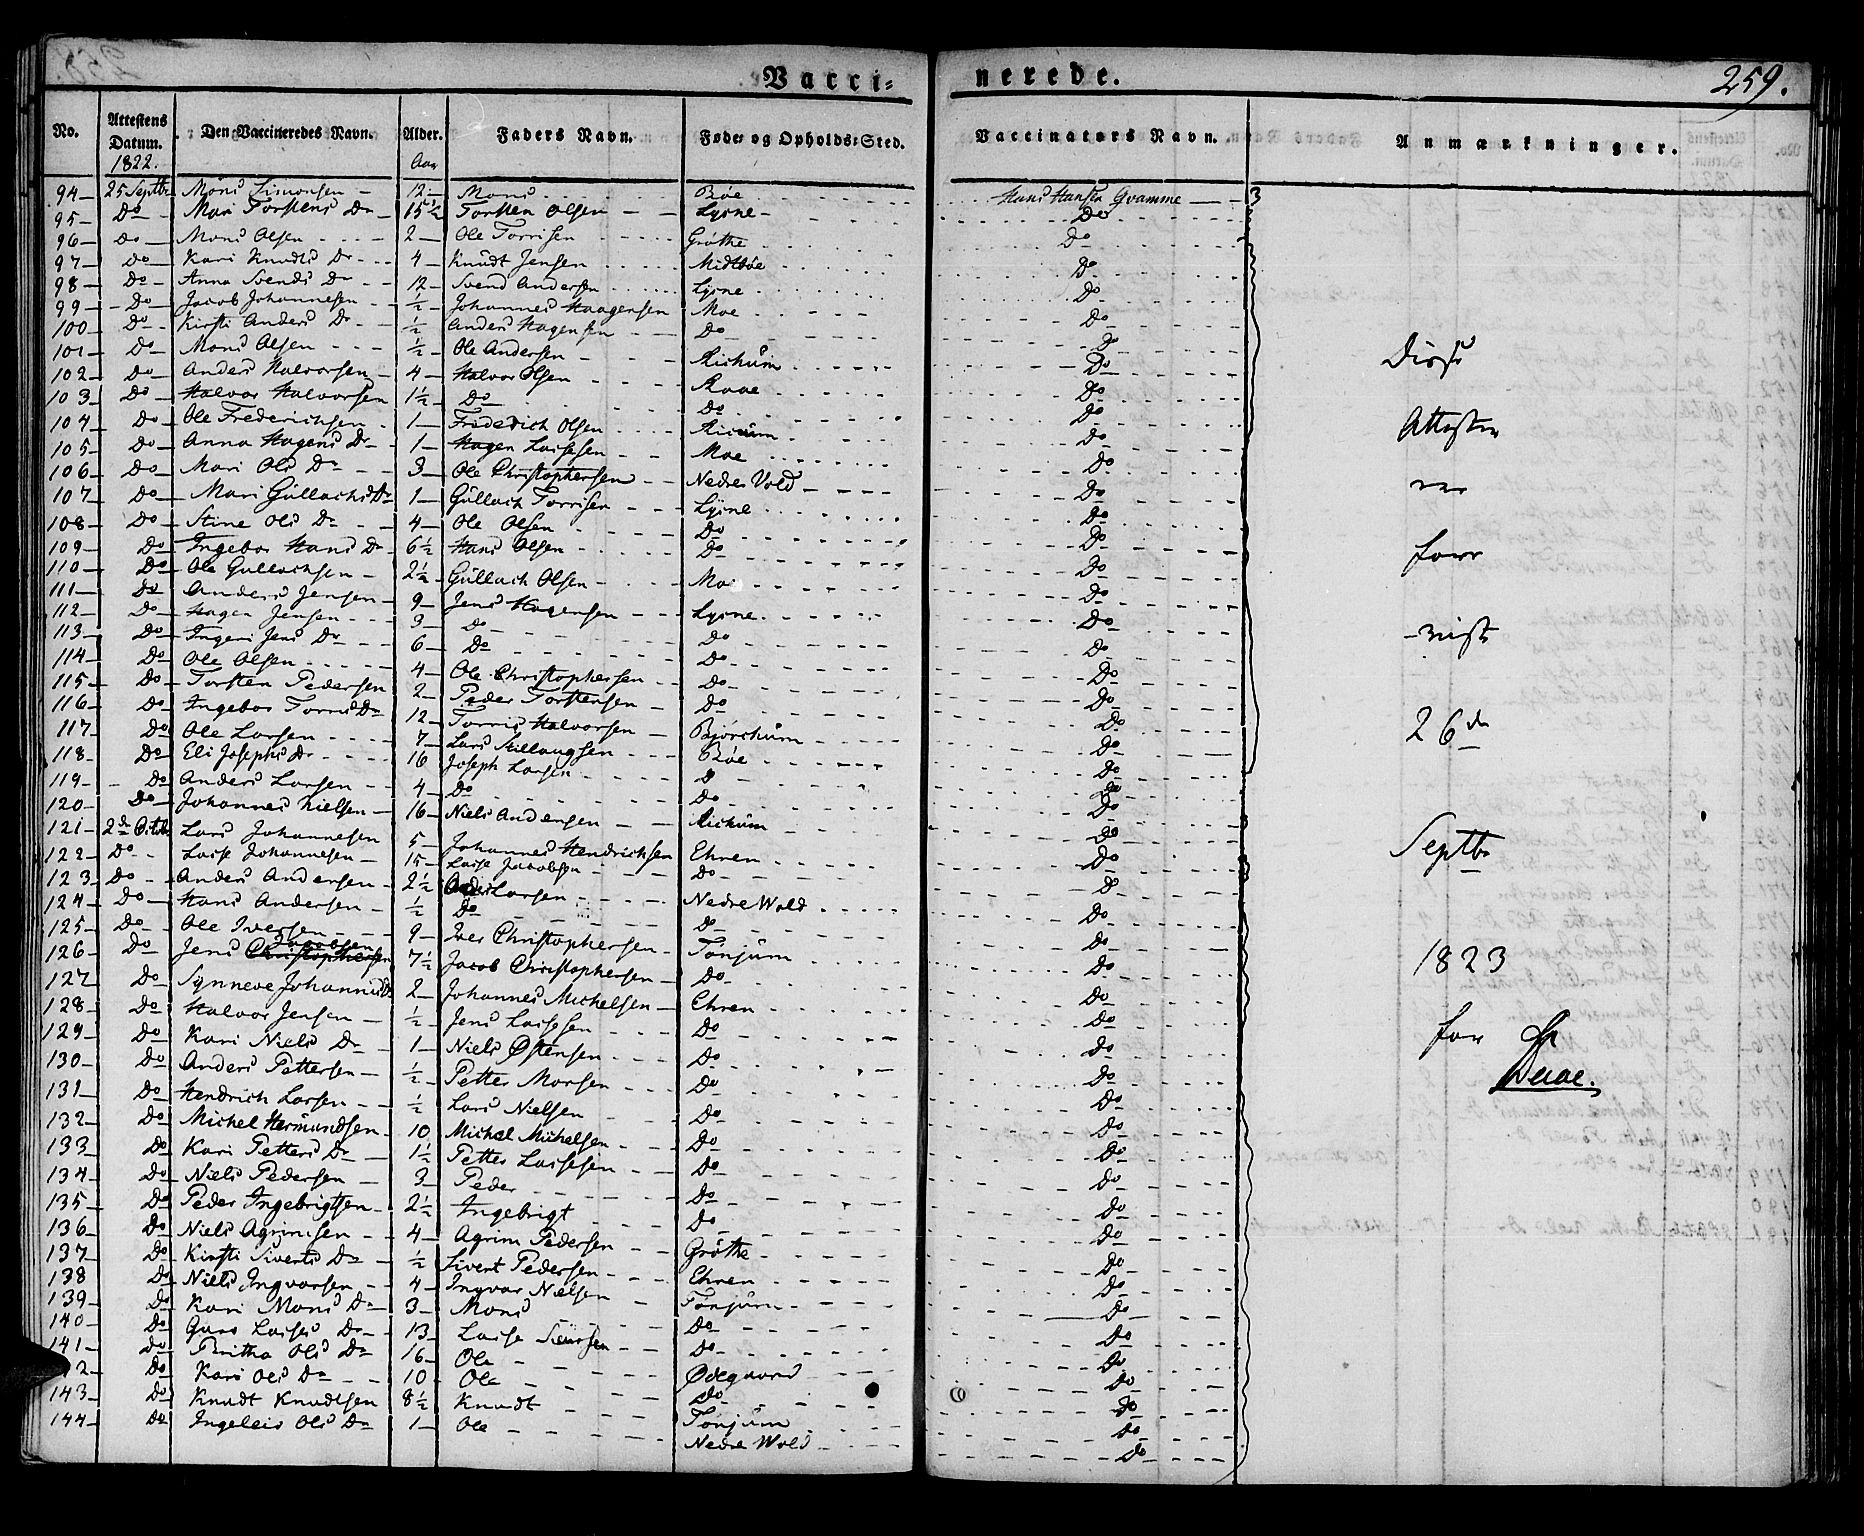 Vacci= nerede. 259.
No. Attestens Datum. Den Vaccineredes Navn. Alder. Faders Navn. Føde= og Opholds=Sted. Vaccinators Navn. Anmærkninger.
1822. Aar
94 25 Septbr Mons Simonsen 12 Mons Bøe Hans Hansen Qvamme
95 Do Mari Torstens Dr 15½ Torsten Olsen Lysne Do
96 Do Mons Olsen 2 Ole Torrisen Grøthe Do
97 Do Kari Knudts Dr 4 Knudt Jensen Midtbøe Do
98 Do Anna Svends Dr 12 Svend Andersen Lysne Do
99 Do Jacob Johannesen ½ Johannes Haagensen Moe Do
100 Do Kirsti Anders Dr ½ Anders Hagensen Do Do
101 Do Mons Olsen ½ Ole Andersen Richum Do
102 Do Anders Halvorsen 4 Halvor Olsen Raae Do
103 Do Halvor Halvorsen 1½ Do Do Do
104 Do Ole Frederichsen 1 Fridedich Olsen Richum Do
105 Do Anna Hagens Dr 1 Hagen Lassesen Moe Do
106 Do Mari Ols Dr 3 Ole Christophersen Nedre Vold Do
107 Do Mari Güllachs Dr 1 Güllach Torrisen Lysne Do
108 Do Stine Ols Dr 4 Ole Olsen Do Do
109 Do Ingebor Hans Dr 6½ Hans Olsen Do Do
110 Do Ole Gullachsen 2½ Güllach Olsen Moe Do
111 Do Anders Jensen 9 Jens Hagensen Lysne Do
112 Do Hagen Jensen 3 Do Do Do
113 Do Ingeri Jens Dr 6 Do Do Do
114 Do Ole Olsen 4 Ole Christophersen Do Do
115 Do Torsten Pedersen 2 Peder Torstensen Do Do
116 Do Ingebor Torris Dr 12 Torris Halvorsen Bjørchum Do
117 Do Ole Larsen 7 Lars Bøe Do
118 Do Eli Josephs Dr 16 Joseph Larsen Do Do
119 Do Anders Larsen 4 Do Do Do
120 Do Johannes Nielsen 16 Niels Andersen Richum Do
121 2de Octobr Lars Johannesen 5 Johannes Hendrichsen Ehren Do
122 Do Lasse Johannesen 15 Lasse Jacobsen Do Do
123 Do Anders Andersen 2½ Anders Larsen Nedre Wold Do
124 Do Hans Andersen ½ Do Do Do
125 Do Ole Iversen 9 Iver Christophersen Tønjum Do
126 Do Jens Christophersen Jacobsen 7½ Jacob Christophersen Do Do
127 Do Synneve Johannis Dr 2 Johannes Michelsen Ehren Do
128 Do Halvor Jensen ½ Jens Lassesen Do Do
129 Do Kari Niels Dr 1 Niels Østensen Do Do
130 Do Anders Pettersen ½ Petter Monsen Do Do
131 Do Hendrich Larsen ½ Lars Nielsen Do Do
132 Do Michel Hermundsen 10 Michel Michelsen Do Do
133 Do Kari Petters Dr 1½ Petter Lassesen Do Do
134 Do Niels Pedersen 3 Peder Do Do
135 Do Peder Ingebrigtsen 2½ Ingebrigt Do Do
136 Do Niels Agrimsen 4 Agrim Pedersen Grøthe Do
137 Do Kirsti Siverts Dr ½ Sivert Pedersen Ehren Do
138 Do Niels Ingvarsen 4 Ingvar Nielsen Tønjum Do
139 Do Kari Mons Dr 3 Mons Do Do
140 Do Lasses Dr 13 Lasse Do Do
141 Do Britha Ols Dr 16 Ole Ødegaard Do
142 Do Kari Ols Dr 10 Ole Do Do
143 Do Knudt Knudtsen 8½ Knudt Tønjum Do
144 Do Ingeleis Ols Dr 1 Ole Nedre Wold Do
Disse
Attester
26de
Septbr
1823
for